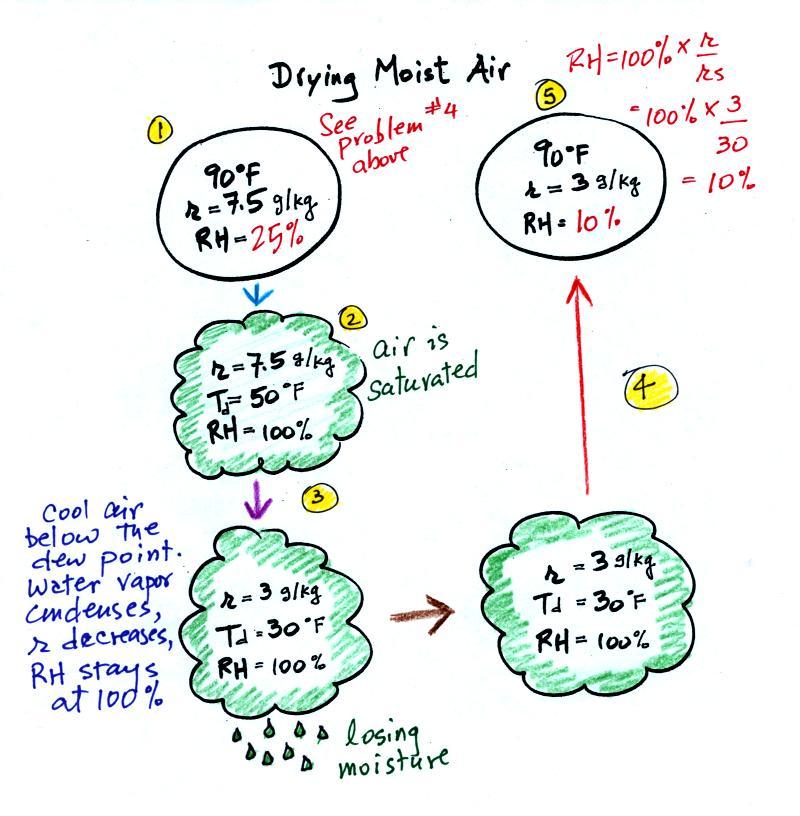 Drying Moist Air
1
See
problem #4
above
90°F
r = 7.5 g/kg
RH = 25%
2
r = 7.5 g/kg
Td = 50°F
RH = 100%
air is
saturated
3
Cool air
below the
dew point.
Water vapor
condenses,
r decreases,
RH stays
at 100%
r = 3 g/kg
Td = 30°F
RH = 100%
losing
moisture
r = 3 g/kg
Td = 30°F
RH = 100%
4
5
90°F
r = 3 g/kg
RH = 10%
RH = 100% × r/rs
= 100% × 3/30
= 10%